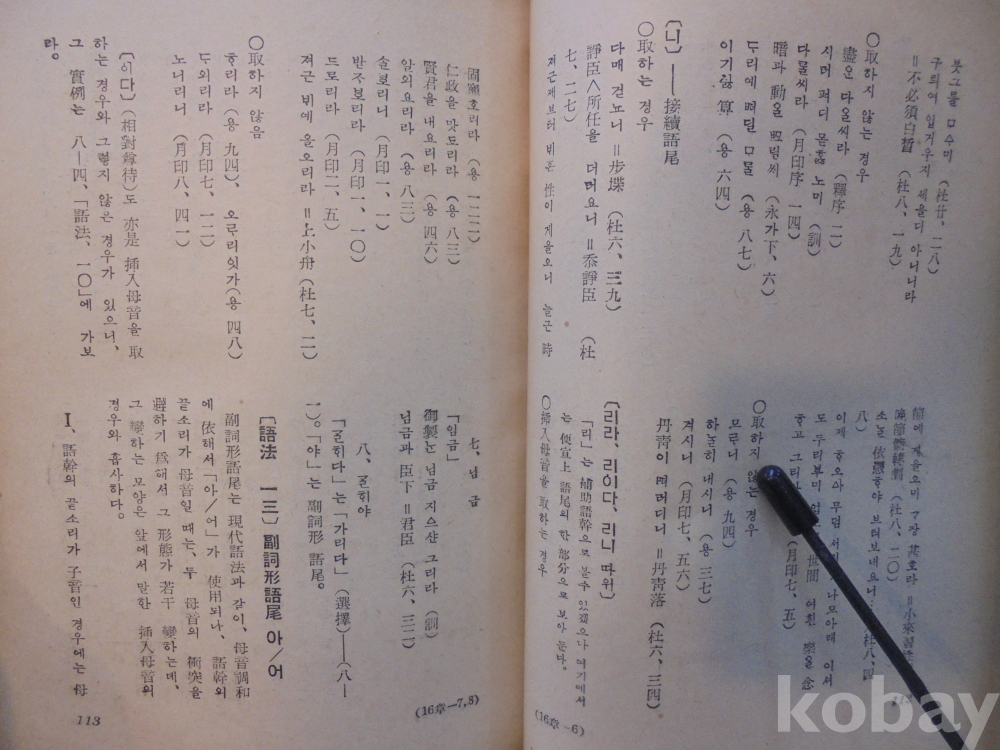 붓그률 ᄆᆞᅀᆞ미 (杜廿、二八)
아니니라
=不必須白晢 (杜八、一九)
○取하지 않는 경우
盡ᄋᆞᆫ 다ᄋᆞᆯ씨라 (釋序 二)
시러 펴디 몯ᄒᆞᇙ 노미 (訓)
다ᄆᆞᆯ씨라 (月印序 一四)
暗과 動ᄋᆞᆯ (永가下、六)
(용 八七)
算 (용 六四)
〔니〕——接續語尾
○取하는 경우
다매 걷노니=步堞 (杜六、三九)
諍臣ㅅ所任을 더러요니=忝諍臣 (杜
七、二七)
性이 게을오니 늘근 時
節에 게을오미
(杜八、二〇)
소ᄂᆞᆯ 依憑ᄒᆞ야 브터보네요니
八)
이제 ᄒᆞ오ᅀᅡ 무덤 나모아래 이셔
도 두리부미 世間 여흰 樂ᄋᆞᆯ 念
ᄒᆞ고 그리 (月印七、五)
○取하지 않는 경우
모ᄅᆞ니 (용 九四)
하ᄂᆞᆯ히 내시니 (용 三七)
겨시니 (月印七、五六)
丹靑이 ᄠᅥ러디니=丹靑落 (杜六、三四)
〔리라、리이다、리니 따위〕
「리」는 補助語幹으로 볼수 있겠으나 여기에서
는 便宜上 語尾의 한 部分으로 보아 둔다。
○揷入母音을 取하는 경우
(16章—6)
固ᄒᆞ리라 (용 一二二)
仁政을 맛도리라 (용 八三)
賢君을 내요리라 (용 四六)
알외요리라 (용 八三)
ᄉᆞᆯ보리니 (月印一、一)
반ᄌᆞ보리라 (月印一、一〇)
드로리라 (月印二、五)
져근 ᄇᆡ예 올오리라=上小舟 (杜七、二)
○取하지 않음
ᄒᆞ리라 (용 九四)、 오ᄅᆞ리잇가(용 四八)
ᄃᆞ외리라 (月印七、一二)
노니리니 (月印八、四一)
〔이다〕(相對尊待)도 亦是 揷入母音을 取
하는 경우와 그렇지 않은 경우가 있으니、
그 實例는 八—四、「語法、一〇」에 가보
라。
七、님금
「임금」
御製ᄂᆞᆫ 님금 지ᅀᆞ샨 그리라 (訓)
님금과 臣下=君臣 (杜六、三二)
八、ᄀᆞᆯᄒᆡ야
「ᄀᆞᆯᄒᆡ다」는「가리다」(選擇)——(八—
一)。「야」는 副詞形 語尾。
〔語法 一三〕副詞形語尾 아/어
副詞形語尾는 現代語法과 같이、母音調和
에 依해서「아/어」가 使用되나、 語幹의
끝소리가 母音일 때는、두 母音의 衝突을
避하기 爲해서 그 形態가 若干 變하는데、
그 變하는 모양은 앞에서 말한 揷入母音의
경우와 흡사하다。
Ⅰ、語幹의 끝소리가 子音인 경우에는 母
113
(16章—7,8)
kobay